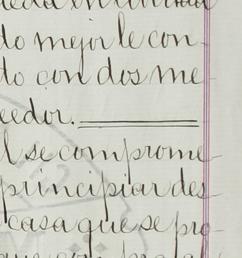 do mejor le con-
do con dos me-
eedor.
l se comprome-
principiar des-
casa que se pro-
que con